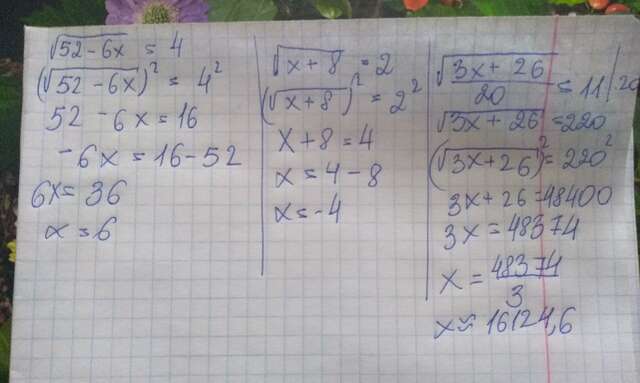 √52-6x = 4
(√52-6x)² = 4²
52 - 6x = 16
-6x = 16-52
6x = 36
x = 6
√x+8 = 2
(√x+8)² = 2²
x+8 = 4
x = 4-8
x = -4
√3x+26/20 = 11 |·20
√3x+26 = 220
(√3x+26)² = 220²
3x+26 = 48400
3x = 48374
x = 48374/3
x ≈ 16124,6